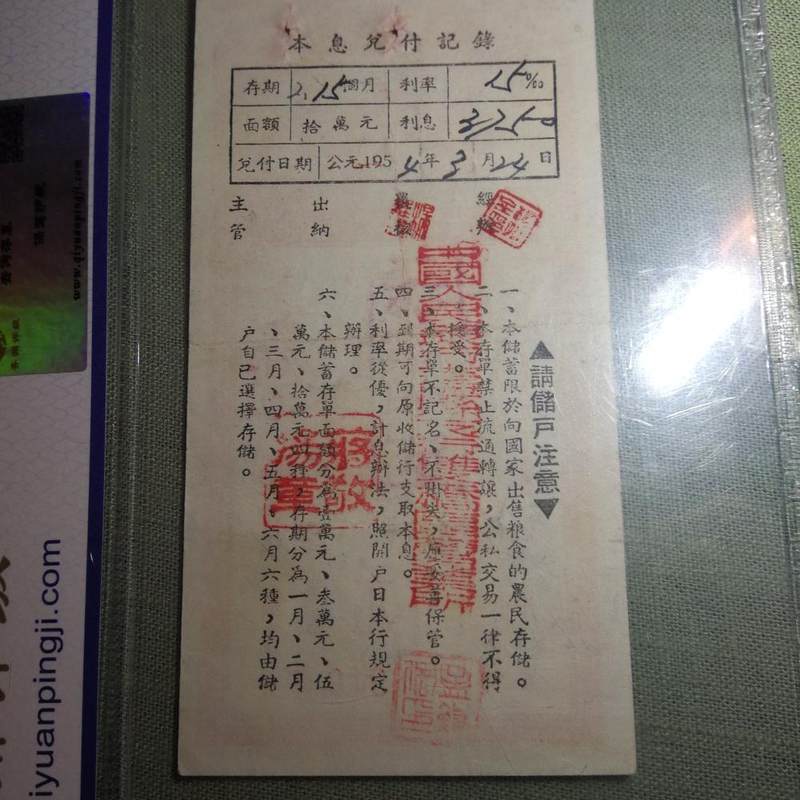 本息兌付記錄
存期 2.15個月 利率 15‰
面額 拾萬元 利息 3,250
兌付日期 公元1954年3月24日
經辦
出納
主管
▲請儲戶注意▼
一、本儲蓄限於向國家出售粮食的農民存儲。
二、本存單禁止流通轉讓，公私交易一律不得
接受。
三、本存單不記名、不掛失，應妥善保管。
四、到期可向原收儲行支取本息。
五、利率從優，計息辦法，照開戶日本行規定
辦理。
六、本儲蓄存單面額分為壹萬元、叁萬元、伍
萬元、拾萬元四種，存期分為一月、二月
、三月、四月、五月、六月六種，均由儲
戶自已選擇存儲。
iyuanpingji.com